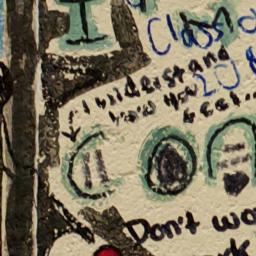 I
Class o
208
I understand
how you
feel...
Don't wo